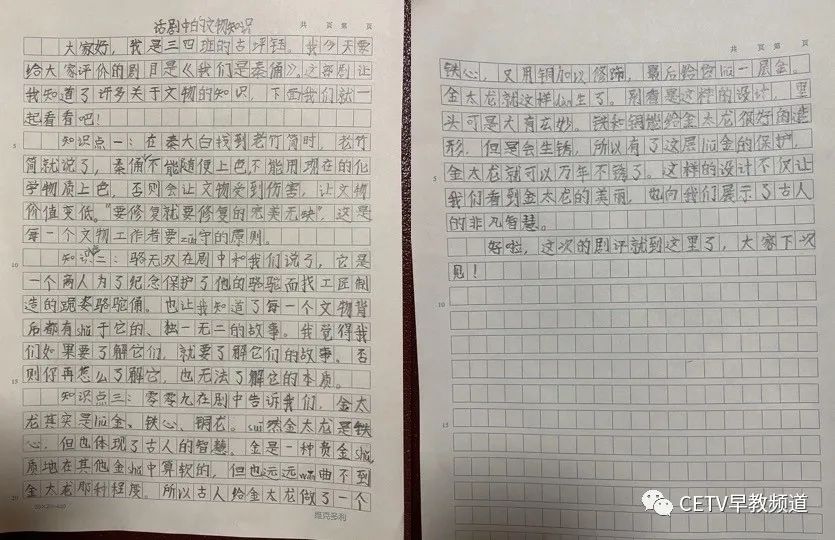 话剧中的文物知识
共 页 第 页
大家好，我是三四班的古评钰。我今天要
给大家评价的剧目是《我们是秦俑》。这部剧让
我知道了许多关于文物的知识，下面我们就一
起看看吧！
5 知识点一：在秦大白找到老竹简时，老竹
简就说了，秦俑不能随便上色，不能用现在的化
学物质上色，否则会让文物受到伤害，让文物
价值变低。“要修复就要修复的完美无缺”，这是
每一个文物工作者要zūn守的原则。
10 知识点二：骆无双在剧中和我们说了，它是
一个商人为了纪念保护了他的骆驼而找工匠制
造的跪姿骆驼俑。也让我知道了每一个文物背
后都有shǔ于它的、独一无二的故事。我觉得我
们如果要了解它们，就要了解它们的故事。否
15 则你再怎么了解它，也无法了解它的本质。
知识点三：零零九在剧中告诉我们，金太
龙其实是liú金、铁心、铜龙。suī然金太龙是铁
心，但也体现了古人的智慧。金是一种贵金shǔ
质地在其他金shǔ中算软的，但也远远wān曲不到
20 金太龙那种程度。所以古人给金太龙做了一个
20×20=400
维克多利
共 页 第 页
铁心，又用铜加以修饰，最后给它liú一层金。
金太龙就这样dàn生了。别看是这样的设计，里
头可是大有玄妙。铁和铜能给金太龙很好的造
形，但是会生锈，所以有了这层liú金的保护，
5 金太龙就可以万年不锈了。这样的设计不仅让
我们看到金太龙的美丽，也向我们展示了古人
的非凡智慧。
好啦，这次的剧评就到这里了，大家下次
见！
10
15
CETV早教频道